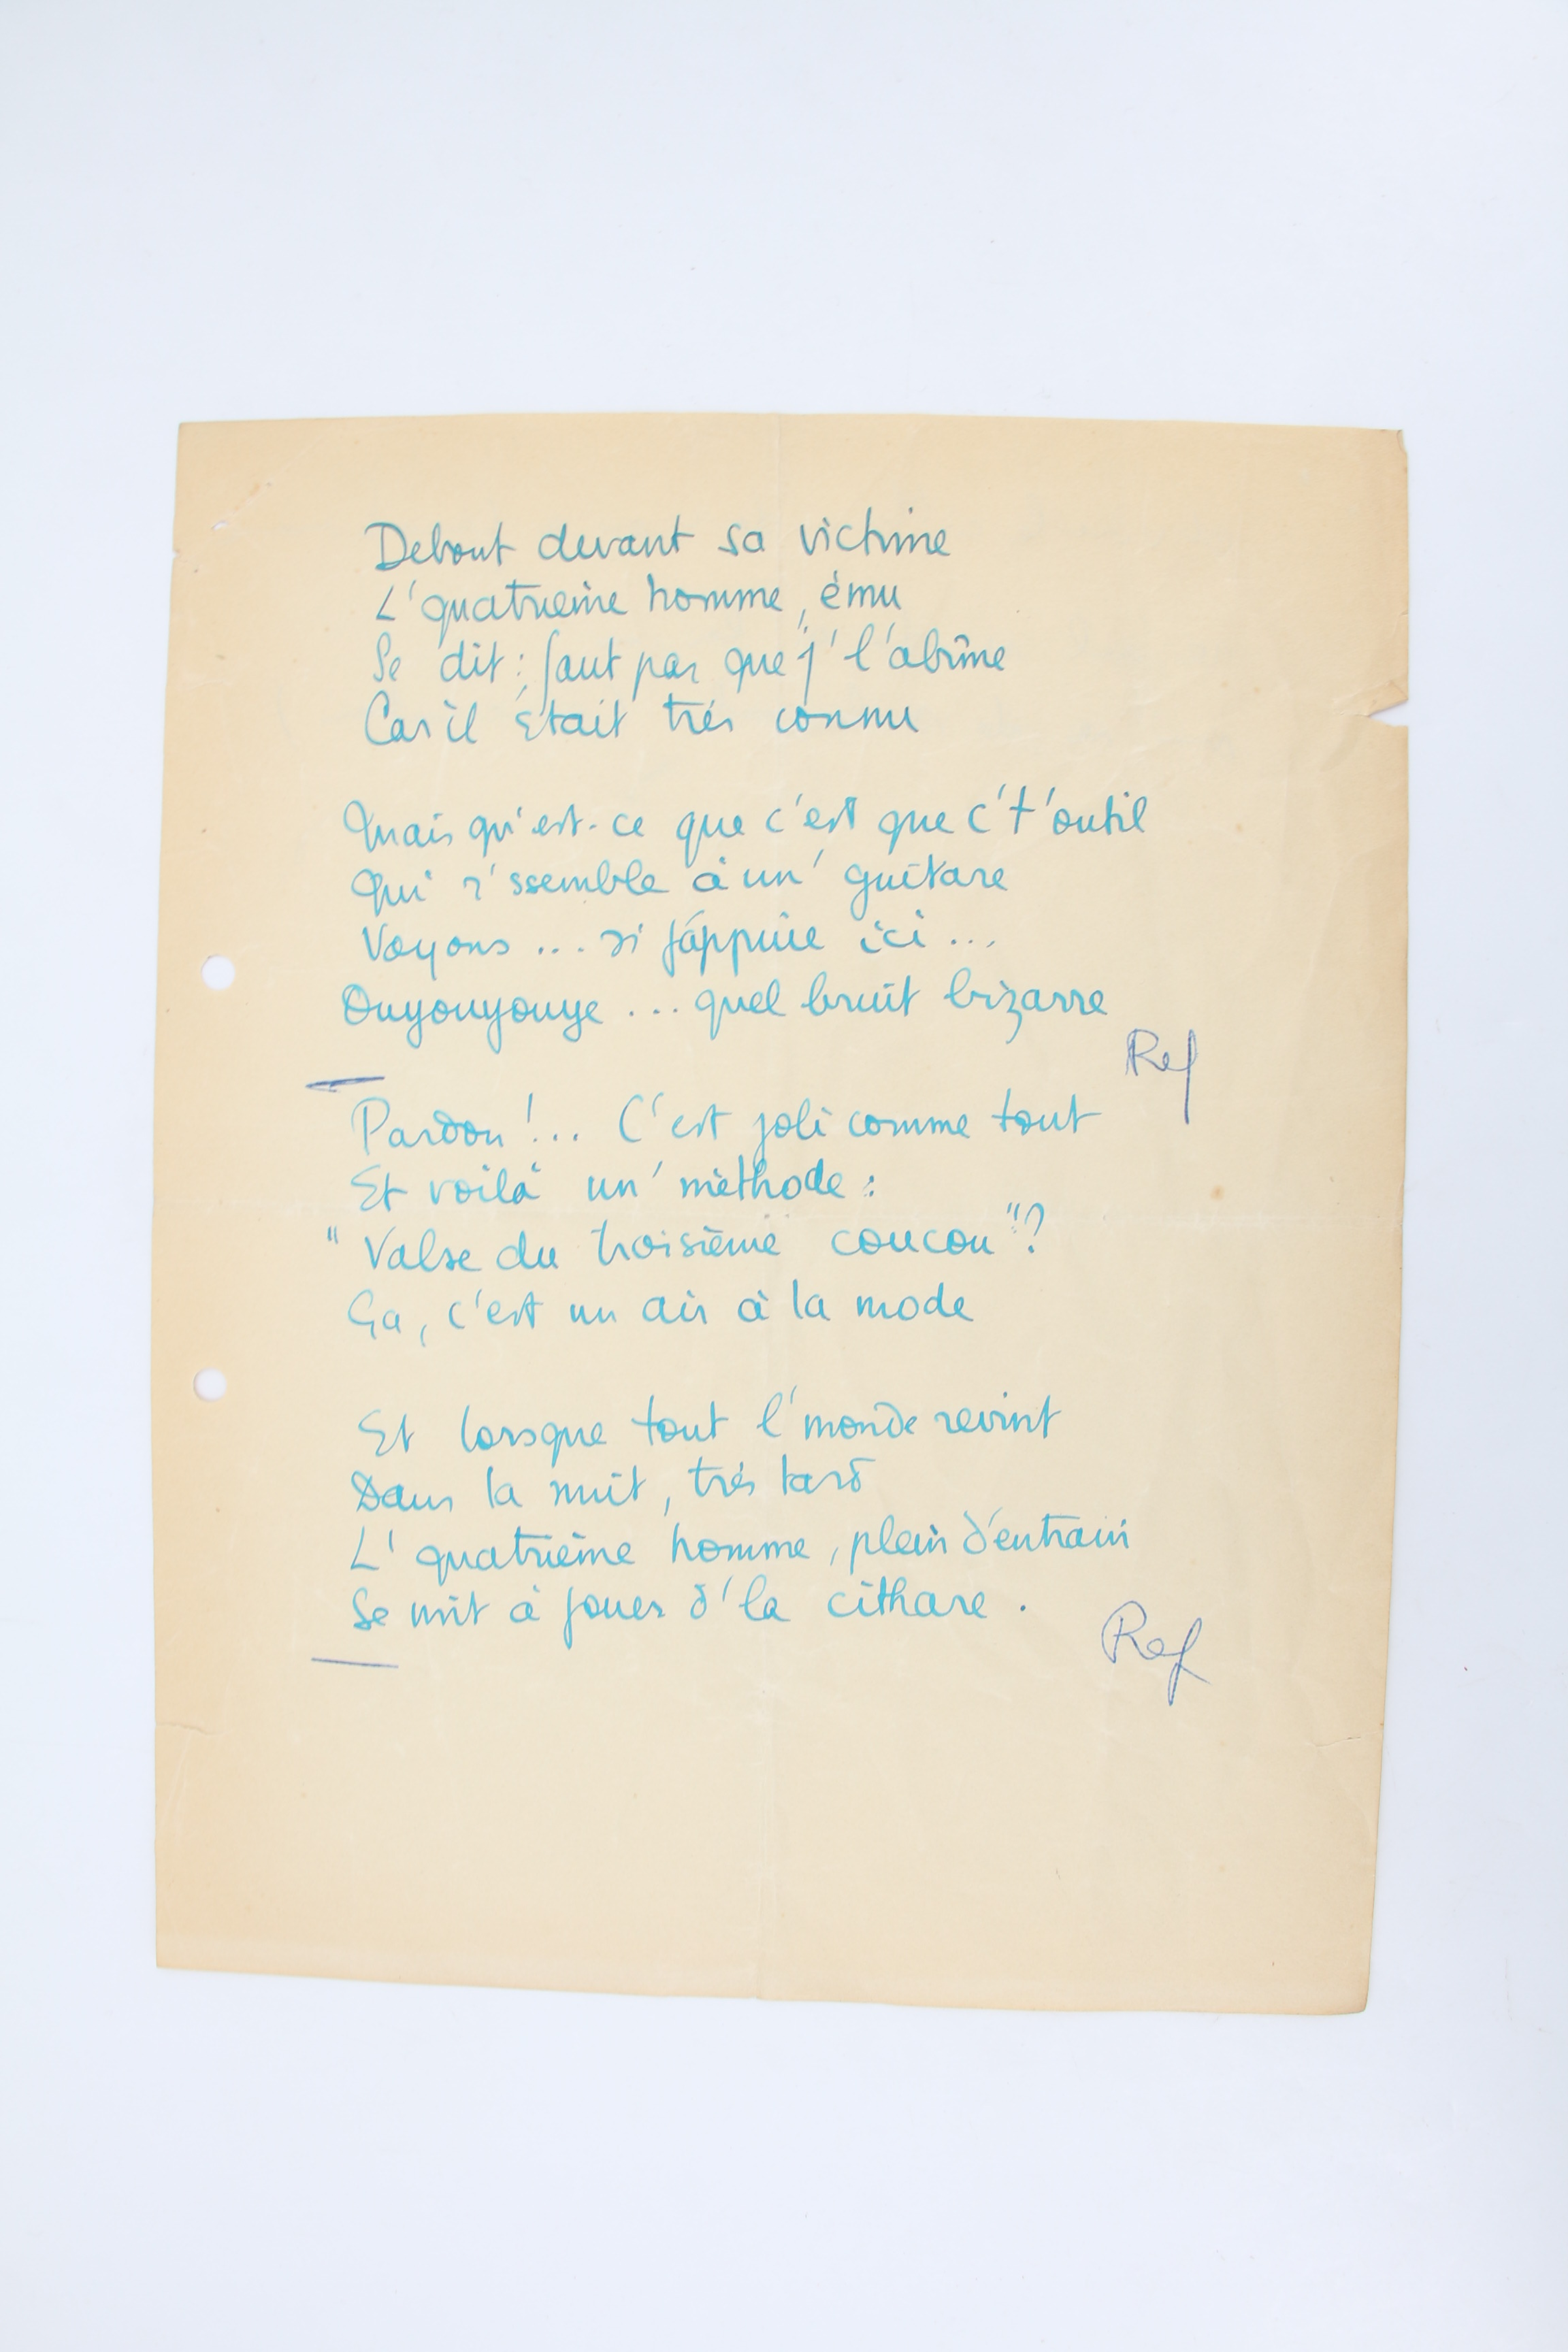 Debout devant sa victime
L'quatrième homme, ému
Se dit : faut pas que j'l'abîme
Car il était très connu
Mais qu'est-ce que c'est que c't'outil
Qui r'ssemble à un' guitare
Voyons ... si j'appuie ici ...
Ouyouyouye ... quel bruit bizarre
Ref
Pardon !... C'est joli comme tout
Et voilà un' méthode :
" Valse du troisième coucou "?
Ça, c'est un air à la mode
Et lorsque tout l'monde revint
Dans la nuit, très tard
L'quatrième homme, plein d'entrain
Se mit à jouer d'la cithare .
Ref